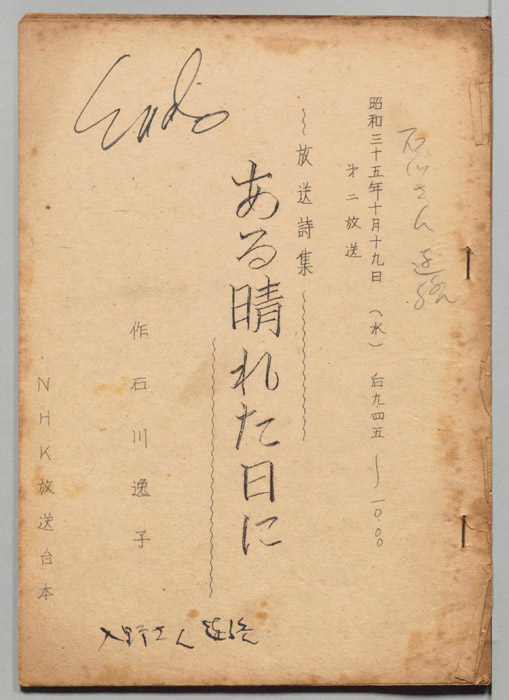 石川さん 連絡
昭和三十五年十月十九日 （水） 后九四五〜一〇.〇〇
才二放送
〜放送詩集〜
ある晴れた日に
Endo
作 石川逸子
NHK放送台本
入野さん 連絡